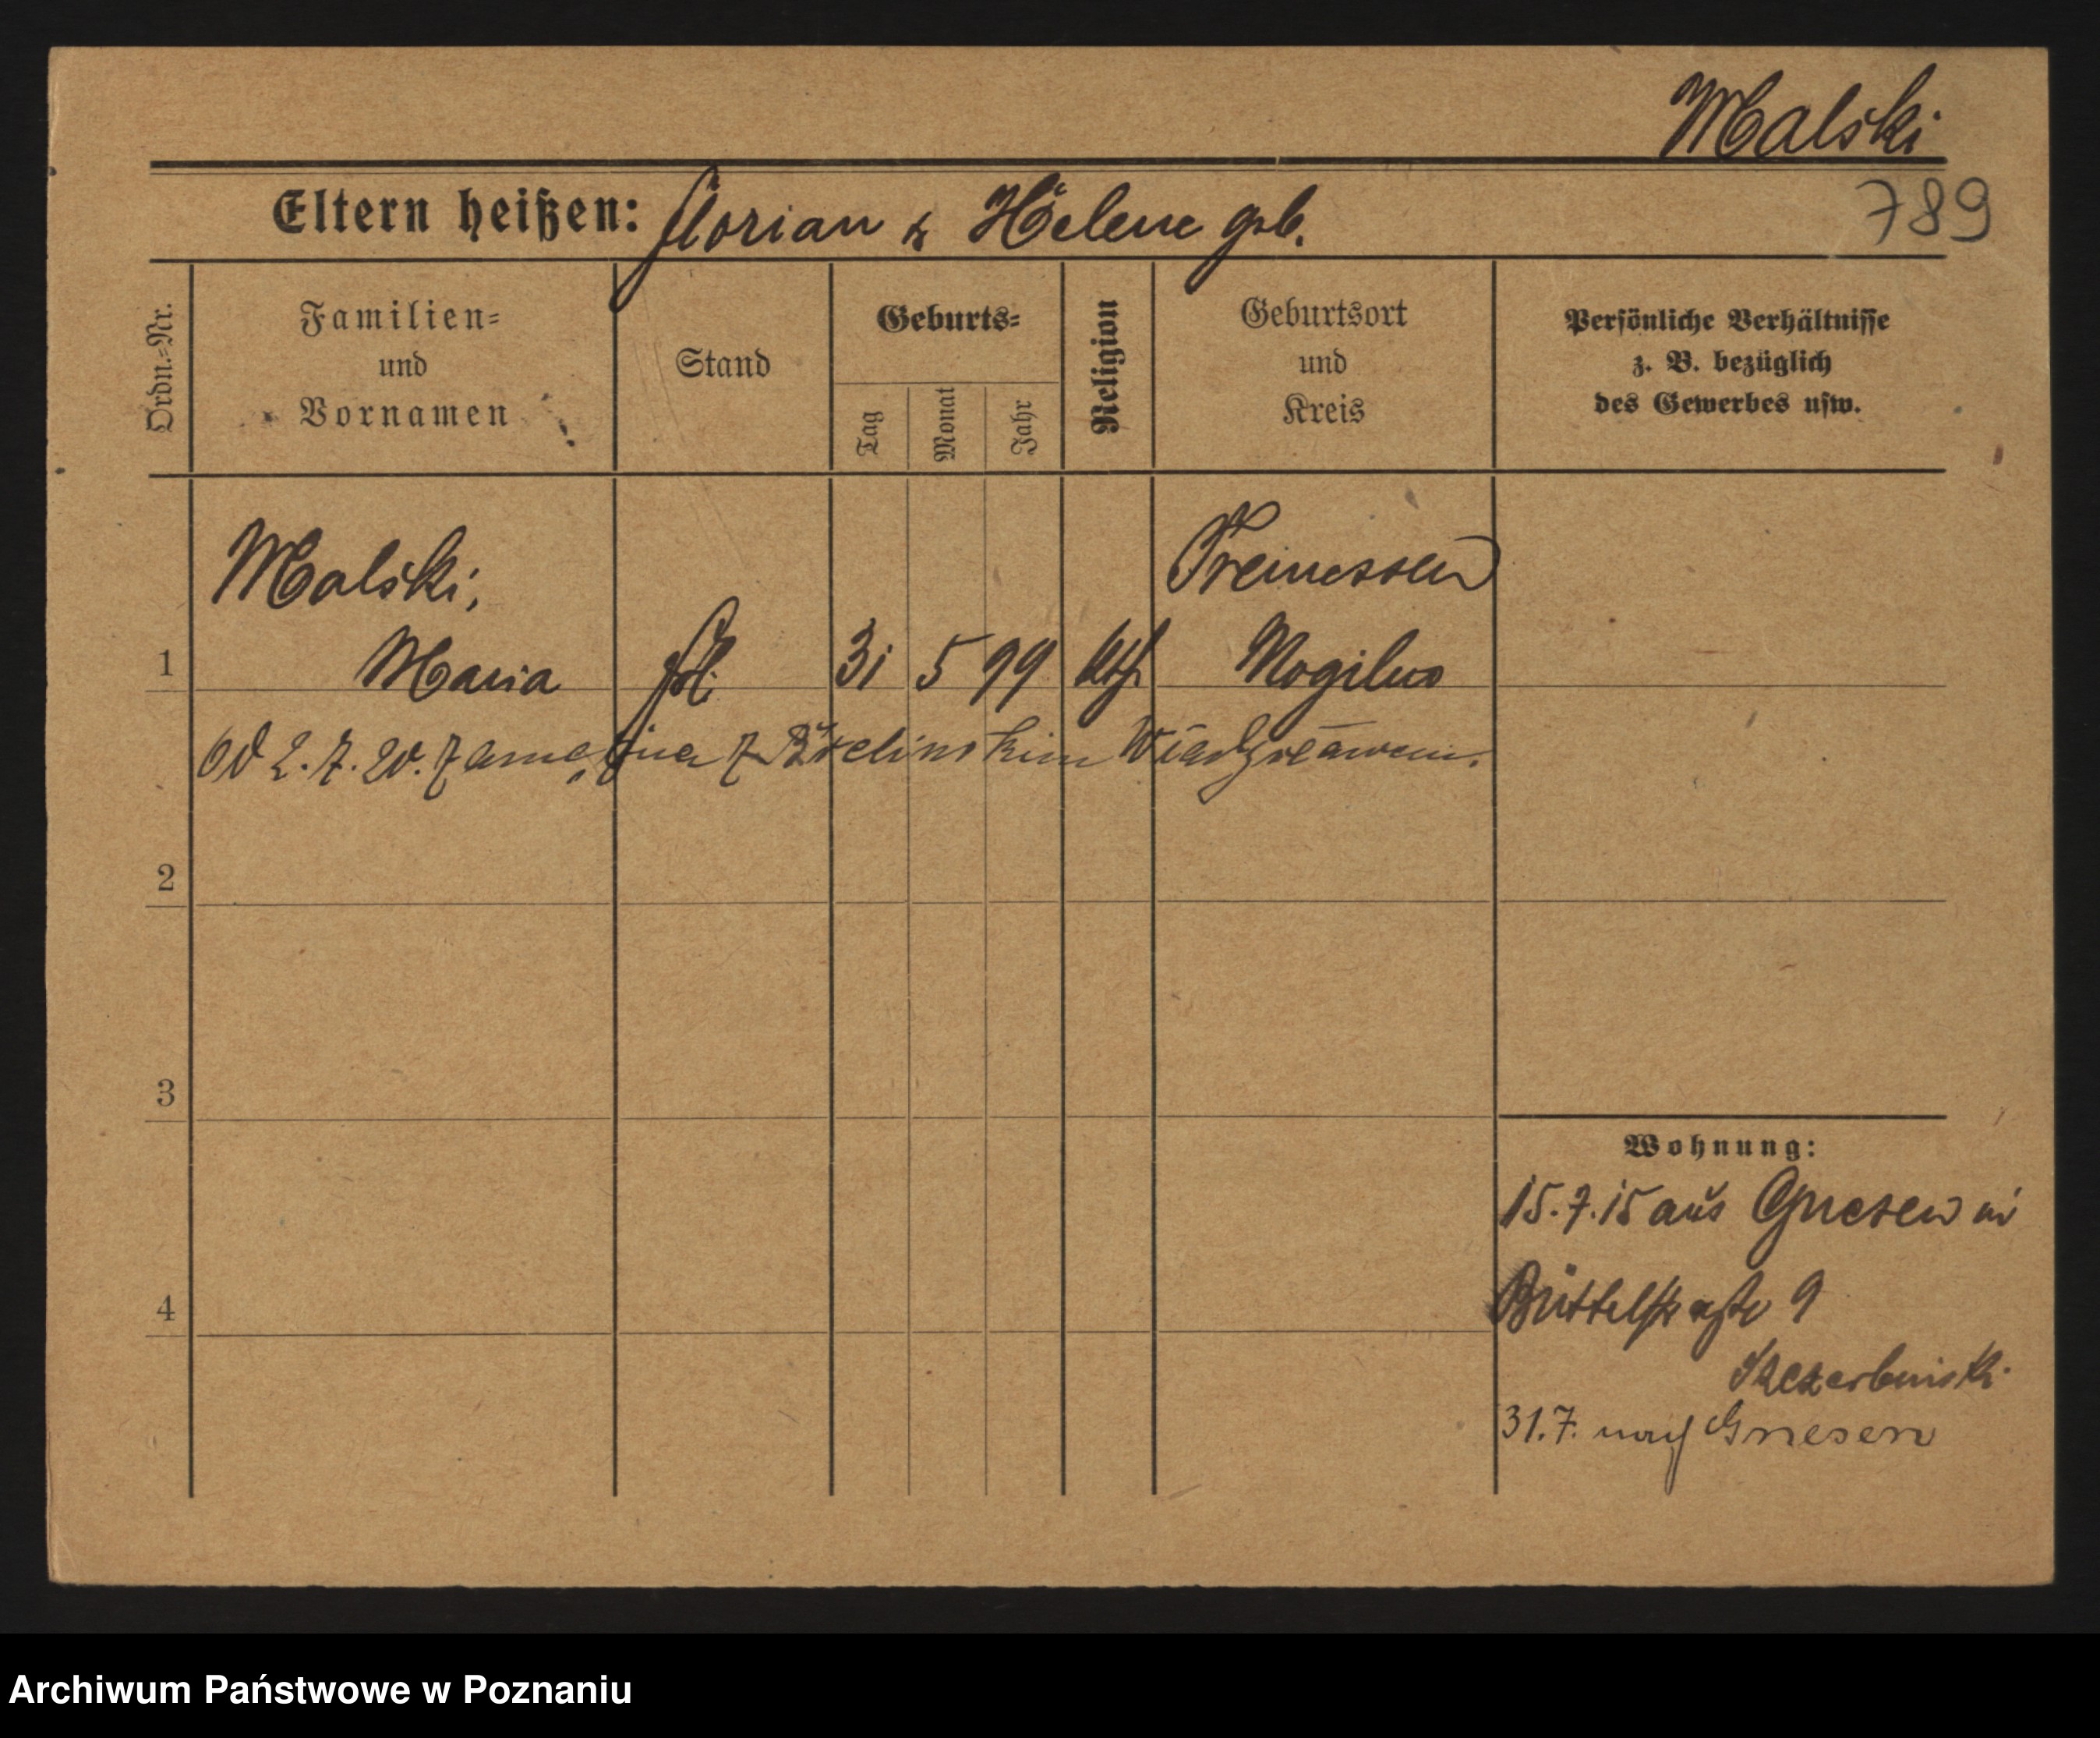 Malski
789
Eltern heißen: Florian & Helene geb.
Ordn.-Nr.
Familien-
und
Vornamen
Stand
Geburts-
Tag
Monat
Jahr
Religion
Geburtsort
und
Kreis
Persönliche Verhältnisse
z. B. bezüglich
des Gewerbes usw.
Malski, Tremessen
1 Maria frl. 31 5 99 kth Mogilno
Od 2.7.20. zamężna z
2
3
4
Wohnung:
15.7.15 aus Gnesen in
Büttelstraße 9
Szczerbinski
31.7. nach Gnesen
Archiwum Państwowe w Poznaniu